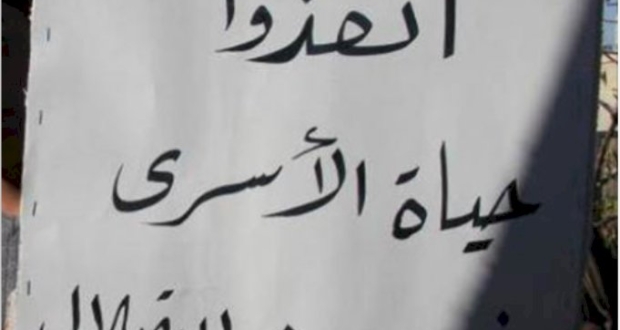 انقذوا
حياة الأسرى